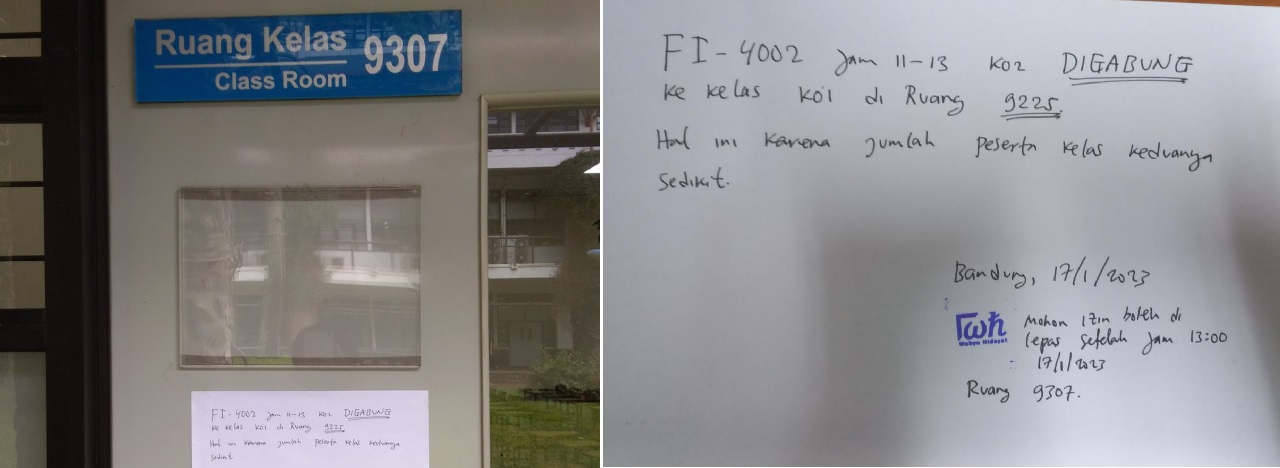 Ruang Kelas 9307
Class Room
FI-4002 jam 11-13 K02 DIGABUNG
ke kelas K01 di Ruang 9225.
Hal ini karena jumlah peserta kelas keduanya
sedikit.
FI-4002 jam 11-13 K02 DIGABUNG
ke kelas K01 di Ruang 9225.
Hal ini karena jumlah peserta kelas keduanya
sedikit.
Bandung, 17/1/2023
Wahyu Hidayat
Mohon izin boleh di
lepas setelah jam 13:00
17/1/2023
Ruang 9307.